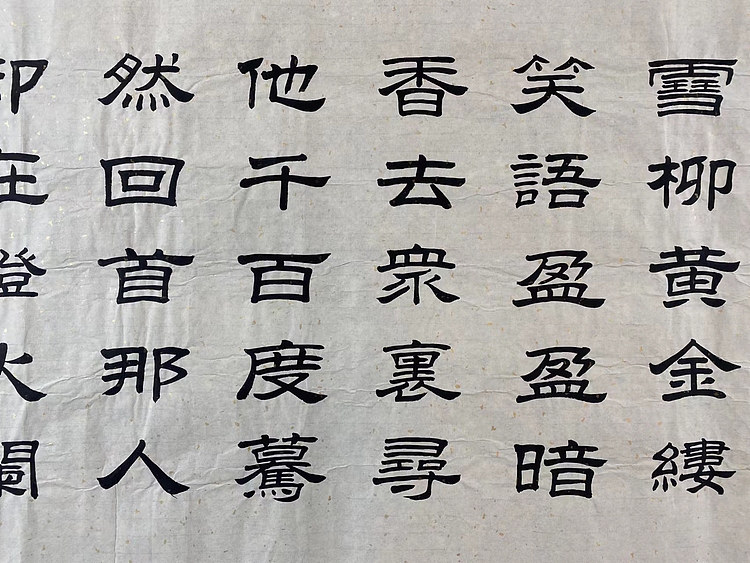 雪柳黄金縷
笑語盈盈暗
香去衆裏尋
他千百度驀
然回首那人
却在燈火闌